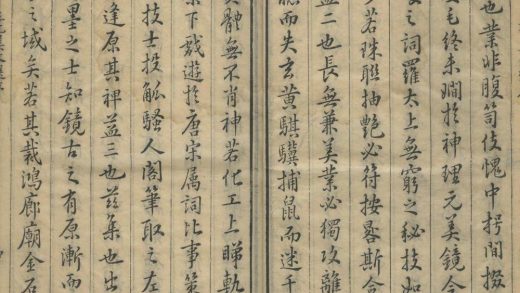 也業非腹笥伎愧中摴間掇
毛終未嫺於神理元美鏡今
之詞羅太上無窮之秘技加
若珠聯抽艷必符按畧斯合
益二也長無兼美業必獨攻離
聽而失玄黃騏驥捕鼠而迷千
具體無不肖神若化工上睇軌
下戲遊於唐宋属詞比事策
技士投觚騷人閣筆取之左
逢原其裨益三也茲集也出
墨之士知鏡古之有原漸而
之域矣若其裁鴻廊廟金石